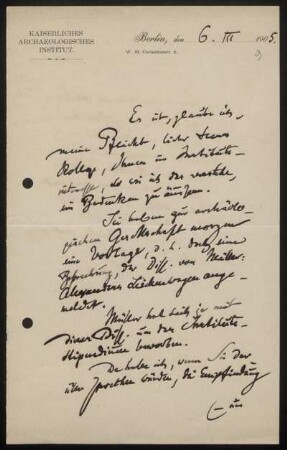 KAISERLICHES
ARCHAEOLOGISCHES
INSTITUT.
Berlin, den 6. III 1905.
W. 10, Corneliusstr. 2.
Es ist, glaube ich,
meine Pflicht, lieber Herr
Kollege, Ihnen im Instituts-
interesse, so wie ich das verstehe,
ein Bedenken zu äussern.
Sie haben zur archäolo-
gischen Gesellschaft morgen
eine Vorlage, d. h. doch eine
Besprechung, der Diss. von Müller:
Alexanders Leichenwagen ange-
meldet.
Müller hat sich ja mit
dieser Diss. um das Instituts-
stipendium beworben.
Da habe ich, wenn Sie dar-
über sprechen würden, die Empfindung
aus